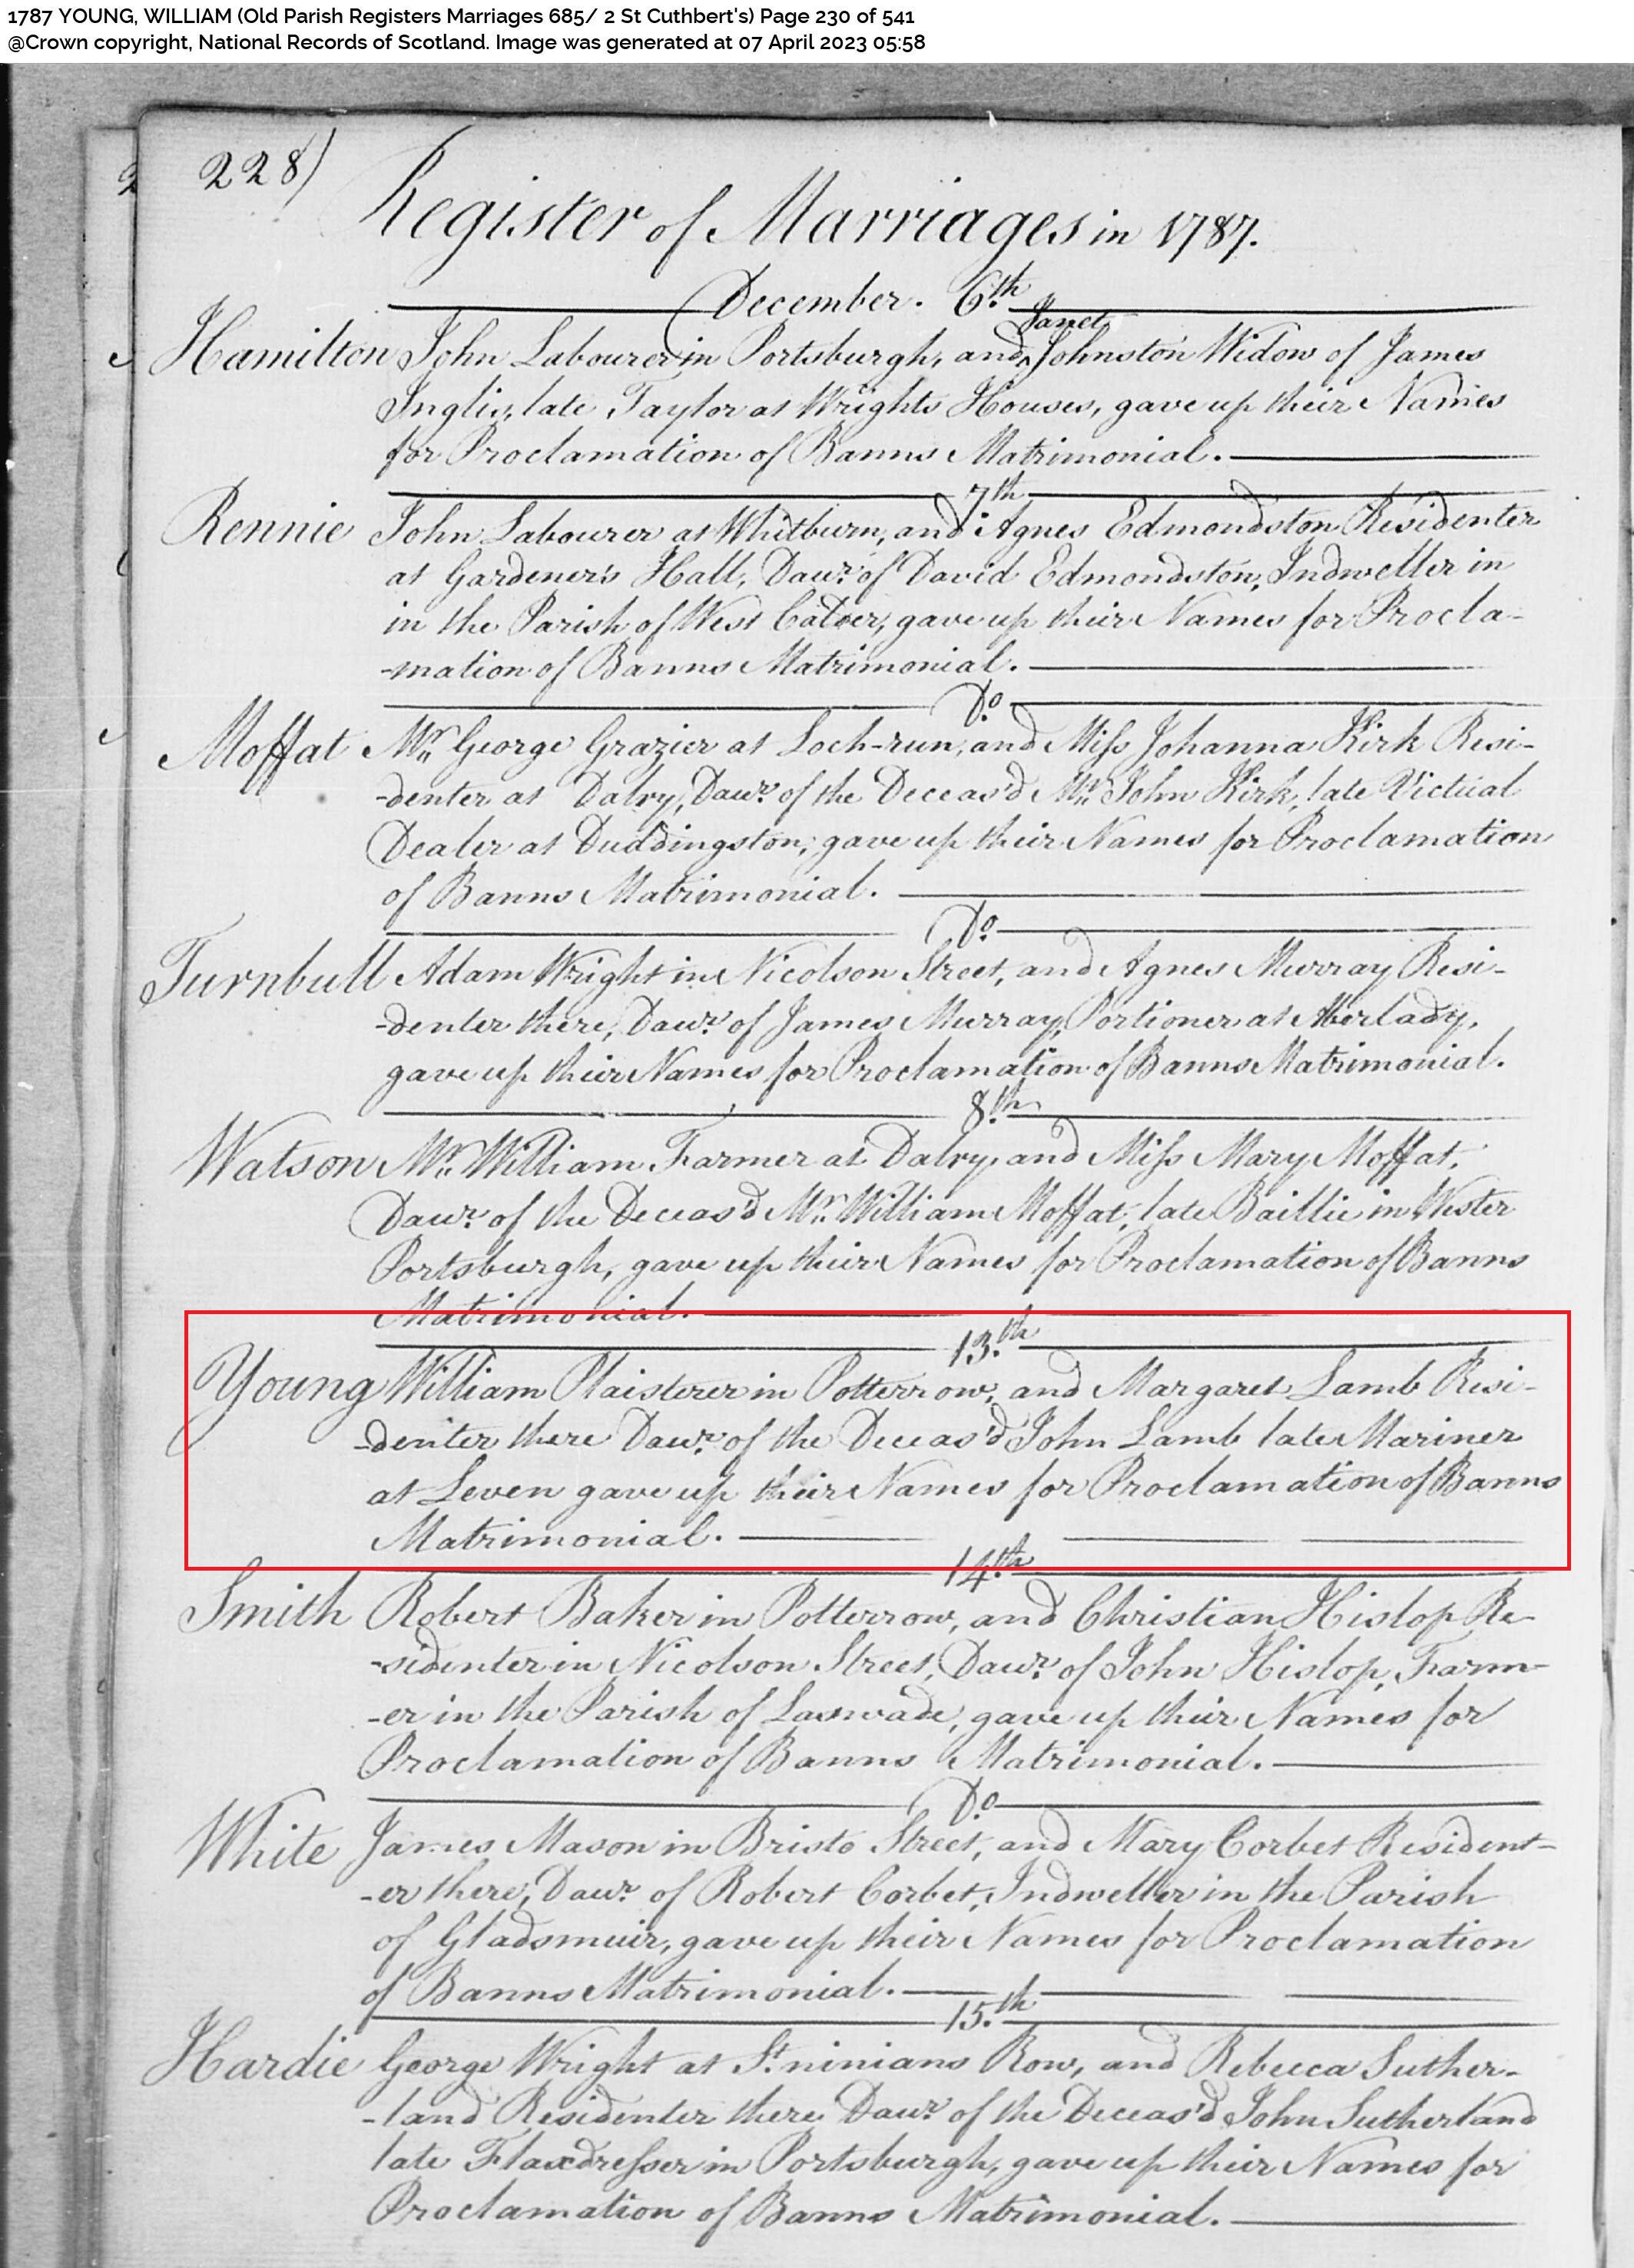 1787 YOUNG, WILLIAM (Old Parish Registers Marriages 685/ 2 St Cuthbert's) Page 230 of 541
@Crown copyright, National Records of Scotland. Image was generated at 07 April 2023 05:58
228)
Register of Marriages in 1787.
December. 6.th
Janet
Hamilton John Labourer in Portsburgh, and ‸ Johnston Widow of James
Inglis, late Taylor at Wrights Houses, gave up their Names
for Proclamation of Banns Matrimonial.
7th
Rennie John Labourer at Whitburn, and Agnes Edmondston Residenter
at Gardener's Hall, Dawr. of David Edmondston, Indweller in
in the Parish of West Calder, gave up their Names for Procla-
-mation of Banns Matrimonial.
Do.
Moffat Mr. George Grazier at Loch-run, and Miss Johanna Kirk Resi-
-denter at Dalry, Dawr. of the Deceas'd Mr. John Kirk, late Victual
Dealer at Duddingston, gave up their Names for Proclamation
of Banns Matrimonial.
Do.
Turnbull Adam Wright in Nicolson Street, and Agnes Murray Resi-
-denter there, Dawr. of James Murray, Portioner at Aberlady,
gave up their Names for Proclamation of Banns Matrimonial.
8.th
Watson Mr. William Farmer at Dalry, and Miss Mary Moffat,
Dawr. of the Deceas'd Mr. William Moffat, late Baillie in Wester
Portsburgh, gave up their Names for Proclamation of Banns
Matrimonial.
13.th
Young William Plaisterer in Potterrow, and Margaret Lamb Resi-
-denter there Dawr. of the Deceas'd John Lamb late Mariner
at Leven gave up their Names for Proclamation of Banns
Matrimonial.
14.th
Smith Robert Baker in Potterrow, and Christian Hislop Re-
-sidenter in Nicolson Street, Dawr. of John Hislop, Farm-
-er in the Parish of Laswade, gave up their Names for
Proclamation of Banns Matrimonial.
Do.
White James Mason in Bristo Street, and Mary Corbet Resident-
-er there, Dawr. of Robert Corbet, Indweller in the Parish
of Gladsmuir, gave up their Names for Proclamation
of Banns Matrimonial.
15.th
Hardie George Wright at St. ninians Row, and Rebecca Suther-
-land Residenter there Dawr. of the Deceas'd John Sutherland
late Flaxdresser in Portsburgh, gave up their Names for
Proclamation of Banns Matrimonial.